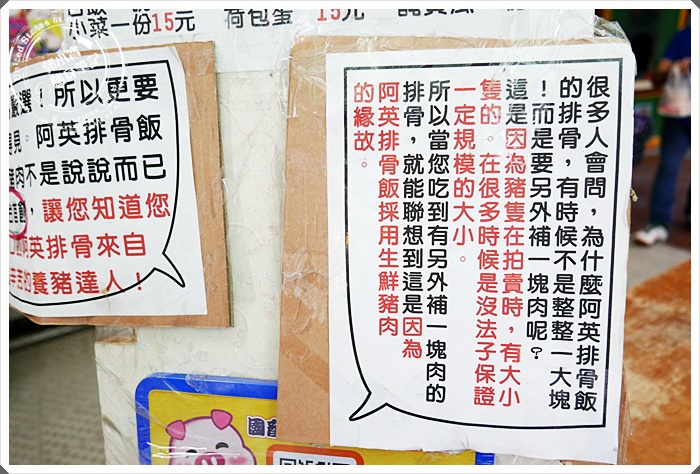 小菜一份15元
荷包蛋 15元
嚴選！所以更要
見。阿英排骨飯
豬肉不是說說而已
，讓您知道您
阿英排骨來自
的養豬達人！
很多人會問，為什麼阿英排骨飯
的排骨，有時候不是整整一大塊
！而是要另外補一塊肉呢？
這是因為豬隻在拍賣時，有大小
隻的。在很多時候是沒法子保證
一定規模的大小。
所以當您吃到有另外補一塊肉的
排骨，就能聯想到這是因為
阿英排骨飯採用生鮮豬肉
的緣故。